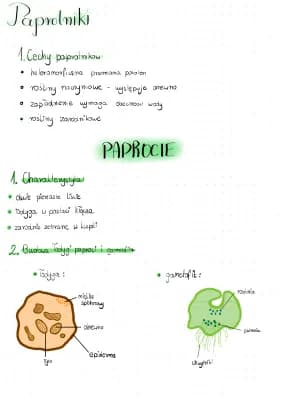 Paprotniki
1. Cechy paprotników
• heteromorficzna przemiana pokoleń
• rośliny naczyniowe - występuje drewno
• zapłodnienie wymaga obecności wody
• rośliny zarodnikowe
PAPROCIE
1. Charakterystyka
• duże pierzaste liście
• łodyga w postaci kłącza
• zarodnie zebrane w kupki
2. Budowa łodygi paproci i gametofit
• łodyga:
• gametofit:
drewno
epiderma
łyko
rodnia
plemnia
chwytniki